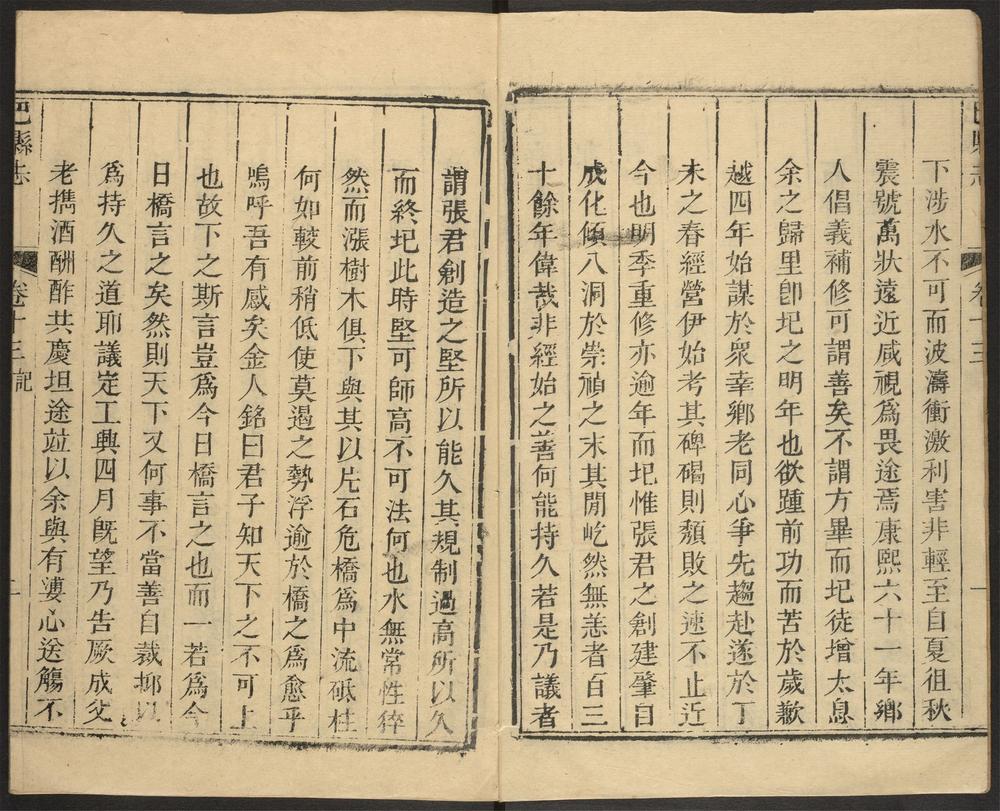 下涉水不可而波濤衝激利害非輕至自夏徂秋
震號萬狀遠近咸視爲畏途焉康熙六十一年鄉
人倡義補修可謂善矣不謂方畢而圮徒增太息
余之歸里卽圮之明年也欲踵前功而苦於歲歉
越四年始謀於衆幸鄉老同心爭先趨赴遂於丁
未之春經營伊始考其碑碣則頽敗之速不止近
今也明季重修亦逾年而圮惟張君之創建肇自
成化傾八洞於崇禎之末其閒屹然無恙者百三
十餘年偉哉非經始之善何能持久若是乃議者
謂張君創造之堅所以能久其規制過高所以久
而終圮此時堅可師高不可法何也水無常性猝
然而漲樹木俱下與其以片石危橋爲中流砥柱
何如較前稍低使莫遏之勢浮逾於橋之爲愈乎
嗚呼吾有感矣金人銘曰君子知天下之不可上
也故下之斯言豈爲今日橋言之也而一若爲今
日橋言之矣然則天下又何事不當善自裁抑以
爲持久之道耶議定工興四月旣望乃告厥成父
老擕酒酬酢共慶坦途竝以余與有婆心送觴不
巴縣志 卷十三 記